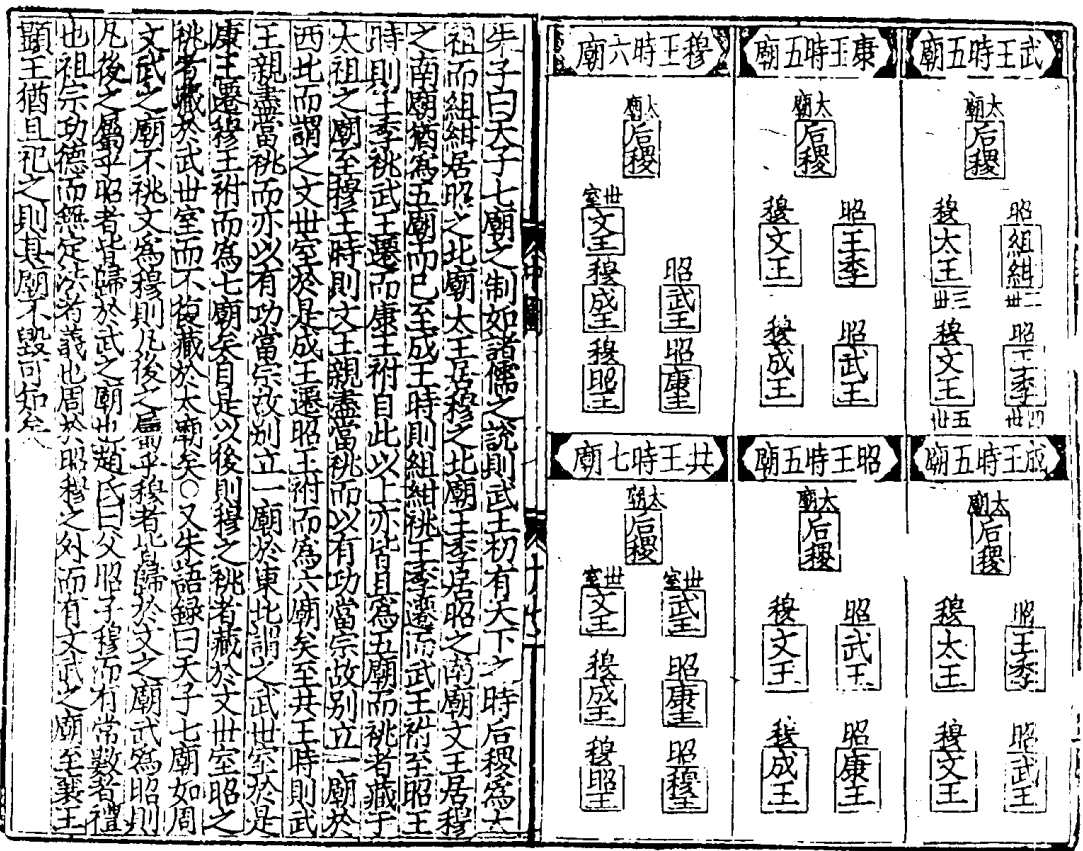 武王時五廟
太廟
后稷
昭
組紺
二世
穆
太王
三世
昭
王季
四世
穆
文王
五世
康王時五廟
太廟
后稷
昭
王季
穆
文王
昭
武王
穆
成王
穆王時六廟
太廟
后稷
世室
文王
昭
武王
穆
成王
昭
康王
穆
昭王
成王時五廟
太廟
后稷
昭
王季
穆
太王
昭
武王
穆
文王
昭王時五廟
太廟
后稷
昭
武王
穆
文王
昭
康王
穆
成王
共王時七廟
太廟
后稷
世室
武王
世室
文王
昭
康王
穆
成王
昭
穆王
穆
昭王
朱子曰天子七廟之制如諸儒之說則武王初有天下之時后稷爲太
祖而組紺居昭之北廟太王居穆之北廟王季居昭之南廟文王居穆
之南廟猶爲五廟而已至成王時則組紺祧王季遷而武王祔至昭王
時則王季祧武王遷而康王祔自此以上亦皆且爲五廟而祧者藏于
太祖之廟至穆王時則文王親盡當祧而以有功當宗故別立一廟於
西北而謂之文世室於是成王遷昭王祔而爲六廟矣至共王時則武
王親盡當祧而亦以有功當宗故別立一廟於東北謂之武世室於是
康王遷穆王祔而爲七廟矣自是以後則穆之祧者藏於文世室昭之
祧者藏於武世室而不復藏於太廟矣○又朱語録曰天子七廟如周
文武之廟不祧文爲穆則凡後之屬乎穆者皆歸於文之廟武爲昭則
凡後之屬乎昭者皆歸於武之廟也 氏曰父昭子穆而有常數者禮
也祖宗功德而無定法者義也周於昭穆之外而有文武之廟至襄王
顯王猶且祀之則其廟不毀可知矣